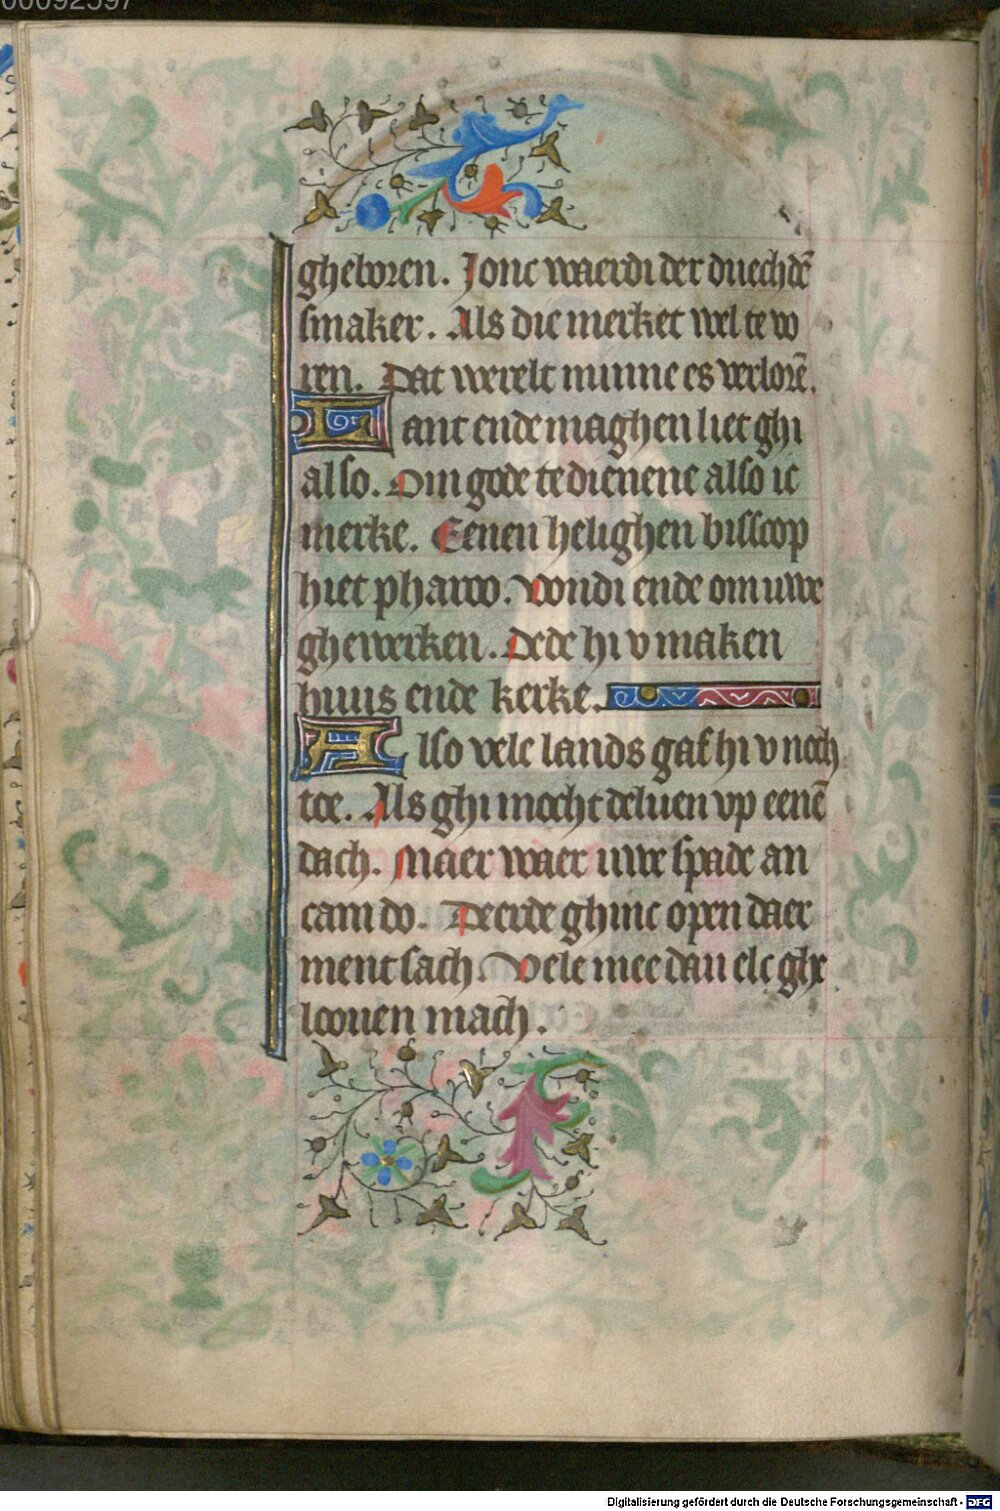 00092597
gheboren. Jonc waerdi der duechdē
smaker. Als die merket wel te vo
ren. Dat werelt minne es verlorē.
Lant ende maghen liet ghi
also. Om gode te dienene also ic
merke. Eenen helighen bisscop
hiet pharoo. Vondi ende om uwe
ghewerken. Dede hi v maken
huus ende kerke.
Also vele lands gaf hi v noch
toe. Als ghi mocht deluen vp eenē
dach. Maer waer uwe spade an
cam do. Deerde ghinc open daer
ment sach. Vele mee dan elc ghe
loouen mach.
Digitalisierung gefördert durch die Deutsche Forschungsgemeinschaft - DFG